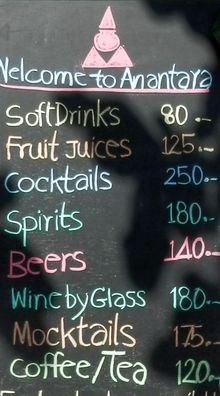 Welcome to Anantara
Soft Drinks 80.-
Fruit Juices 125.-
Cocktails 250.-
Spirits 180.-
Beers 140.-
Wine by Glass 180.-
Mocktails 175.-
Coffee/Tea 120.-